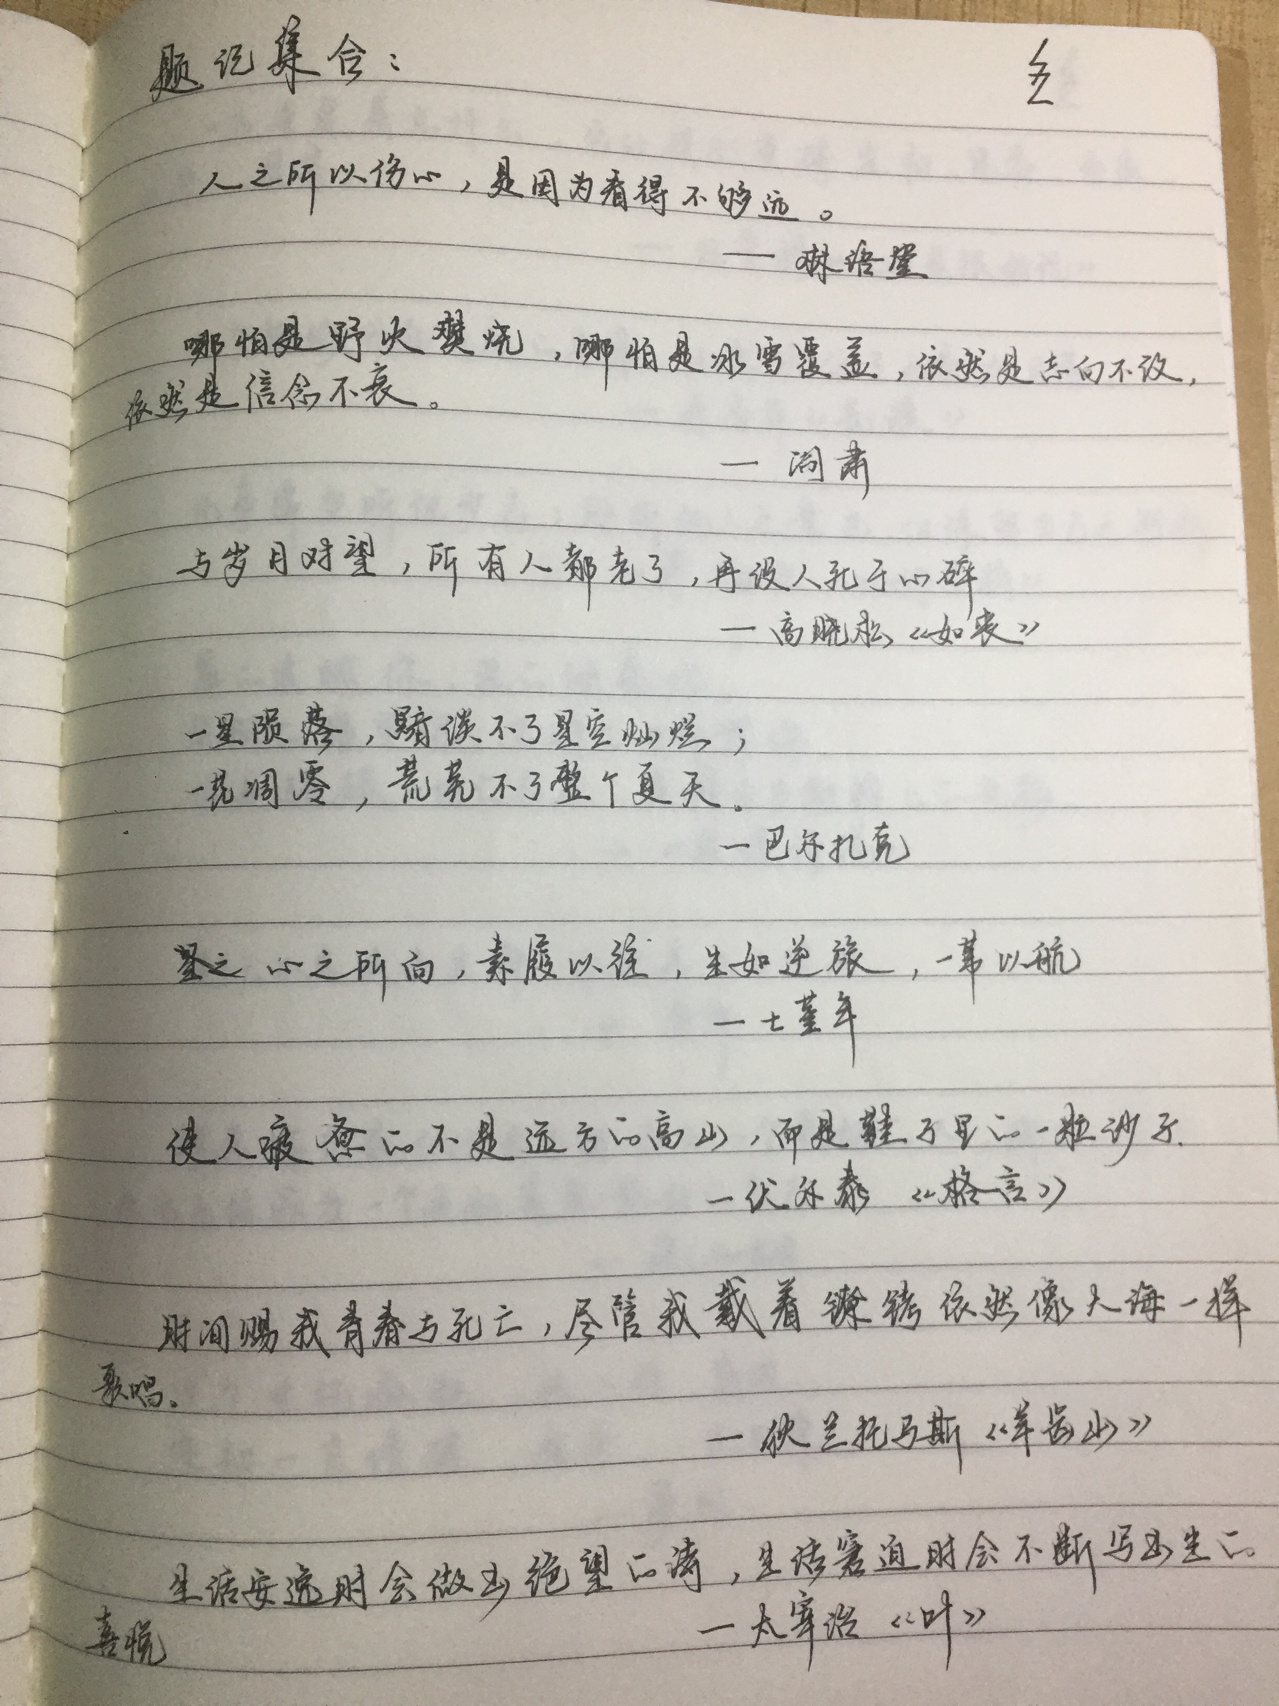 题记集合：
五
人之所以伤心，是因为看得不够远。
— 林语堂
哪怕是野火焚烧，哪怕是冰雪覆盖，依然是志向不改，
依然是信念不衰。
— 阎肃
与岁月对望，所有人都老了，再没人死于心碎
— 高晓松《如丧》
一星陨落，黯淡不了星空灿烂；
一花凋零，荒芜不了整个夏天。
— 巴尔扎克
心之所向，素履以往，生如逆旅，一苇以航
— 七堇年
使人疲惫的不是远方的高山，而是鞋子里的一粒沙子.
— 伏尔泰 《格言》
时间赐我青春与死亡，尽管我戴着镣铐依然像大海一样
歌唱。
— 狄兰托马斯《羊齿山》
生活安逸时会做出绝望的诗，生活窘迫时会不断写出生的
喜悦
— 太宰治《叶》